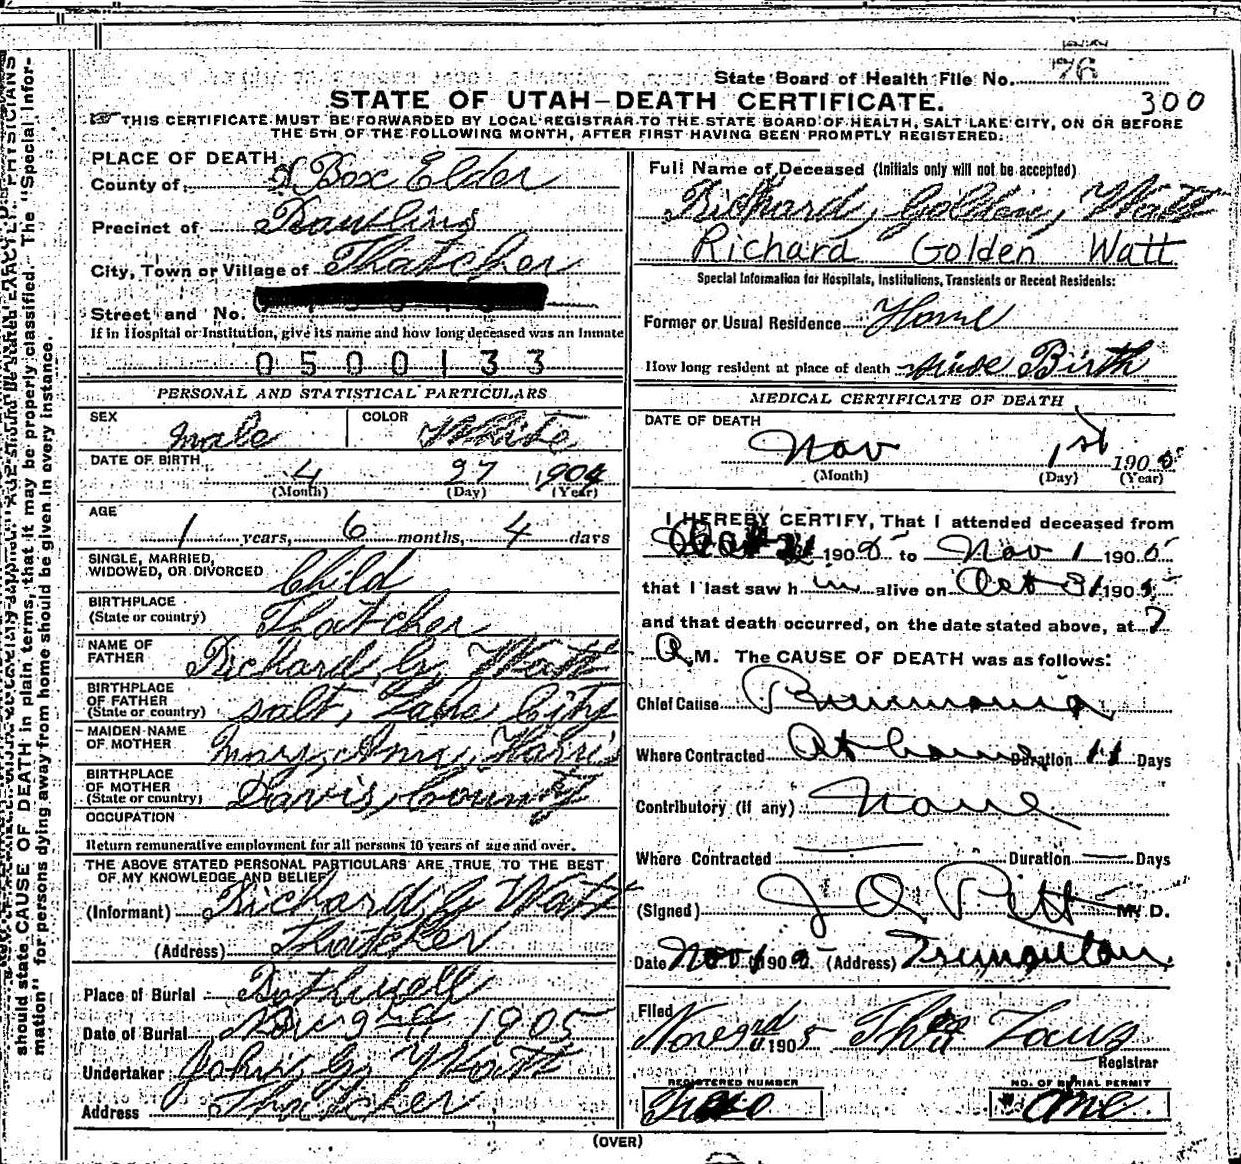 State Board of Health File No. 76
STATE OF UTAH—DEATH CERTIFICATE.
300
THIS CERTIFICATE MUST BE FORWARDED BY LOCAL REGISTRAR TO THE STATE BOARD OF HEALTH, SALT LAKE CITY, ON OR BEFORE
THE 5TH OF THE FOLLOWING MONTH, AFTER FIRST HAVING BEEN PROMPTLY REGISTERED.
PLACE OF DEATH
County of Box Elder
Precinct of Rawlins
City, Town or Village of Thatcher
Street and No.
If in Hospital or Institution, give its name and how long deceased was an Inmate
0500133
PERSONAL AND STATISTICAL PARTICULARS
SEX Male COLOR White
DATE OF BIRTH 4 27 1904
(Month) (Day) (Year)
AGE
1 years, 6 months, 4 days
SINGLE, MARRIED,
WIDOWED, OR DIVORCED Child
BIRTHPLACE
(State or country) Thatcher
NAME OF
FATHER Richard G. Watt
BIRTHPLACE
OF FATHER
(State or country) Salt, Lake City
MAIDEN NAME
OF MOTHER Mary, Amy, Harris
BIRTHPLACE
OF MOTHER
(State or country) Davis, County
OCCUPATION
Return remunerative employment for all persons 10 years of age and over.
THE ABOVE STATED PERSONAL PARTICULARS ARE TRUE TO THE BEST
OF MY KNOWLEDGE AND BELIEF
(Informant) Richard G Watt
(Address) Thatcher
Place of Burial Bothwell
Date of Burial Nov 3rd 1905
Undertaker John G. Watt
Address Thatcher
Full Name of Deceased (Initials only will not be accepted)
Richard, Golden, Watt
Richard Golden Watt
Special Information for Hospitals, Institutions, Transients or Recent Residents:
Former or Usual Residence Home
How long resident at place of death since Birth
MEDICAL CERTIFICATE OF DEATH
DATE OF DEATH
Nov 1st 1905
(Month) (Day) (Year)
I HEREBY CERTIFY, That I attended deceased from
1905 to Nov 1 1905
that I last saw him alive on Oct 31 1905
and that death occurred, on the date stated above, at 7
A.M. The CAUSE OF DEATH was as follows:
Chief Cause Pneumonia
Where Contracted At home Duration 11 Days
Contributory (if any) None
Where Contracted Duration Days
(Signed) J Q Pitt M. D.
Date Nov 1 1905 (Address) Tremonton
Filed
Nov 3rd 1905
Registrar
REGISTERED NUMBER
NO. OF BURIAL PERMIT
One
(OVER)
should state CAUSE OF DEATH in plain terms, that it may be properly classified. The "Special Infor-
mation" for persons dying away from home should be given in every instance.